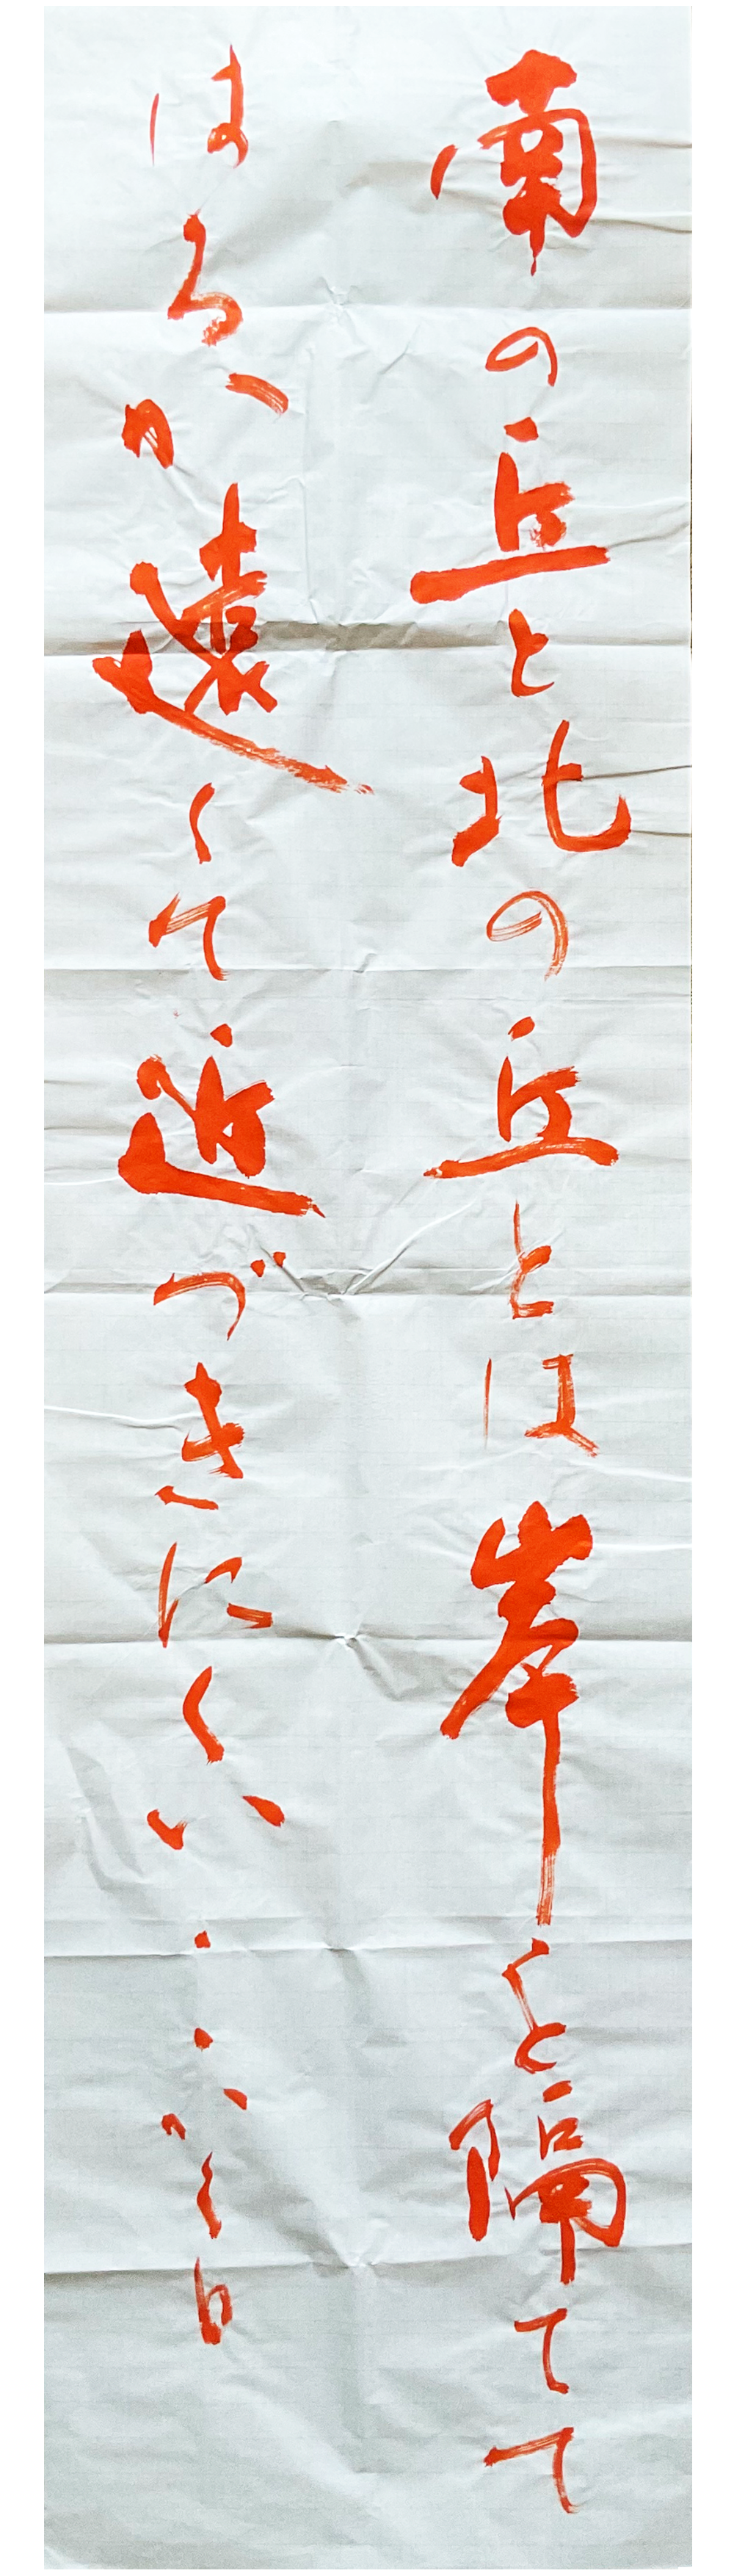 南の丘と北の丘とは岸を隔てて
はるか遠くて近づきにくい